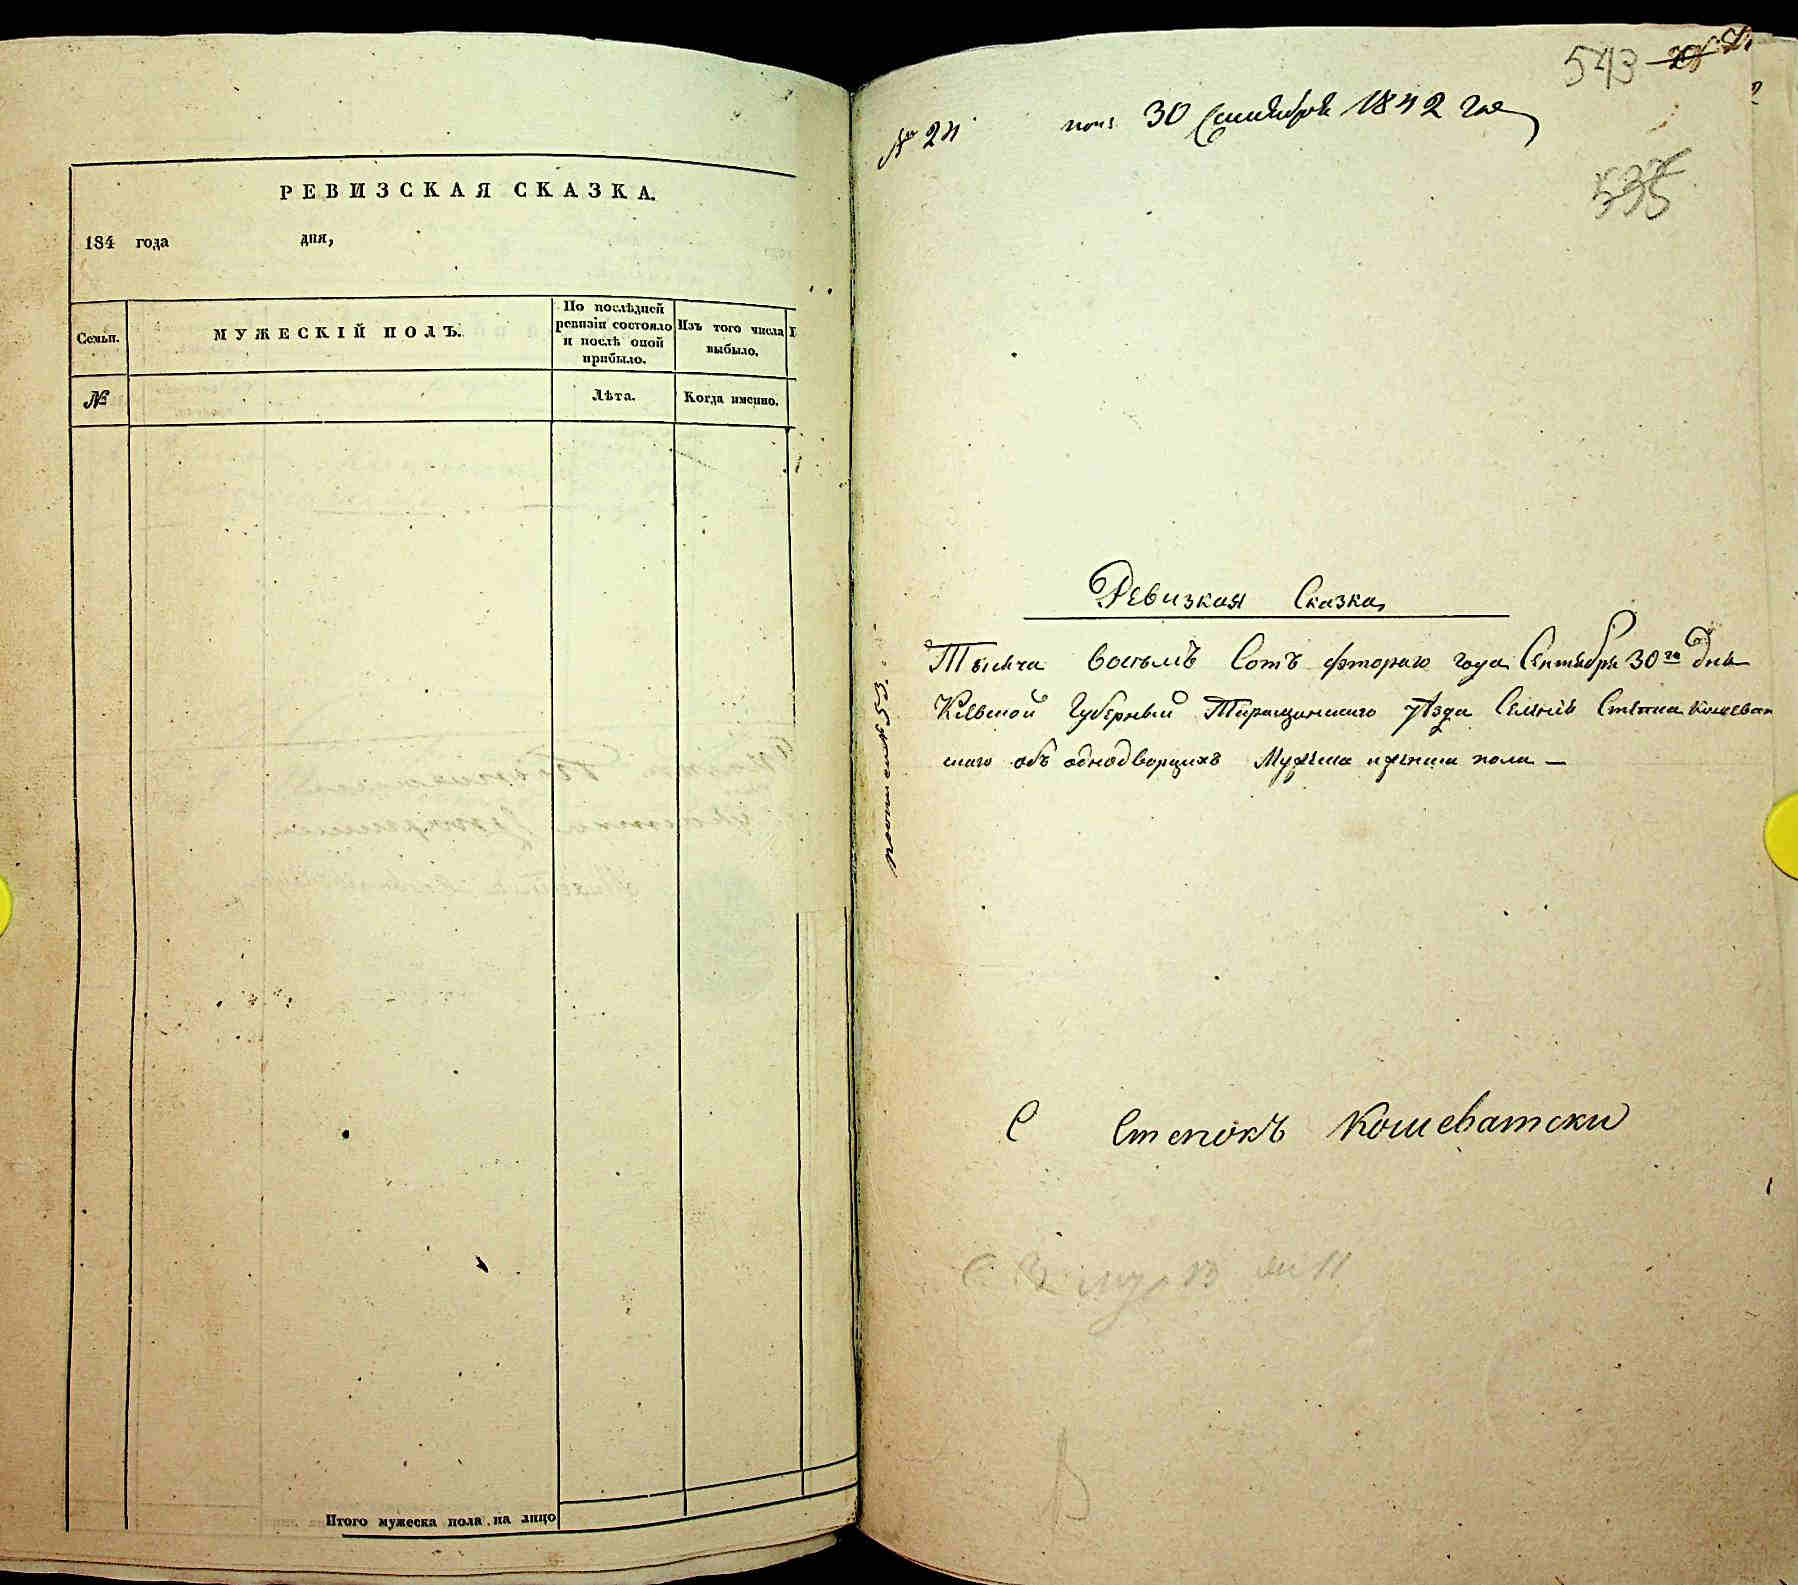 РЕВИЗСКАЯ СКАЗКА.
184 года дня,
Семьи.
МУЖЕСКІЙ ПОЛЪ.
По послѣдней ревизіи состояло и послѣ оной прибыло.
Изъ того числа выбыло.
№
Лѣта.
Когда именно.
Итого мужеска пола на лицо
543
№ 24
30 Сентября 1842 года
535
Ревизкая Сказка
Тысяча восемъ Сотъ фтораго года Сентября 30го Дня
Кіевской Губерныи Таращанскаго уѣзда Селеніе Степка Кошеват
скаго объ однодворцахъ Мужеска и женска пола —
С Степокъ Кошеватски